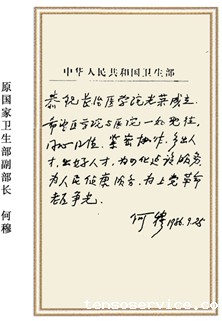 中华人民共和国卫生部
恭祝长治医学院光荣成立.
希望医学院与医院一如既往,
同心同德、紧密协作,多出人
才,出好人才,为四化建设服务,
为人民健康服务,为上党革命
老区争光.
何穆 1986.9.25
原国家卫生部副部长 何穆
tensoservice.com